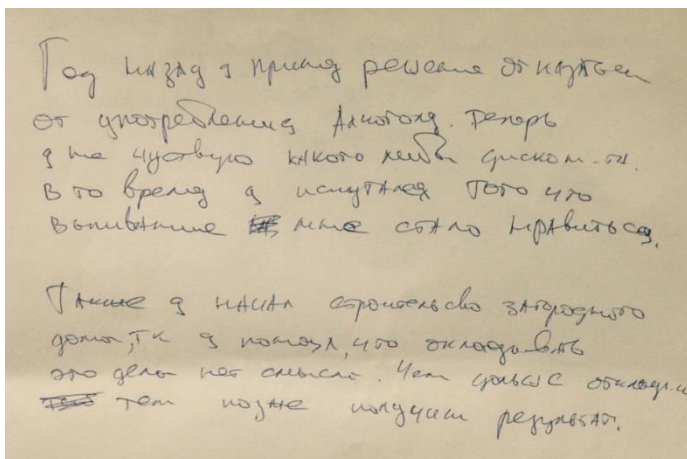 Год назад я принял решение отказаться
от употребления Алкоголя. Теперь
я не чуствую какого либо дискомф-та.
В то время я испугался того что
выпивание мне стало нравиться.
Также я начал строительство загородного
дома, т.к я понял, что откладывать
это дело нет смысла. Чем дольше откладыв
тем позже получим результат.